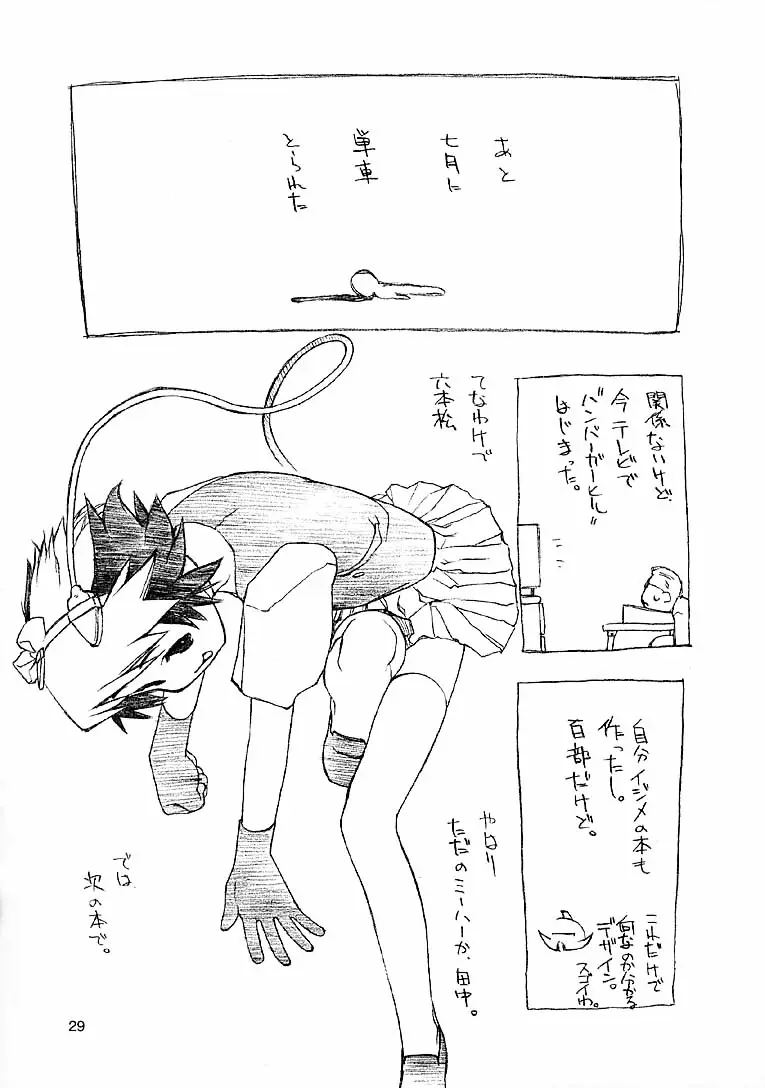 あと
七月に
単車
とられた
関係ないけど
今テレビで
"バンパーガーヒル"
はじまった。
てなわけで
六本松
自分イジメの本も
作ったし。
百部だけど。
これだけで
何なのか分かる
デザイン。
スゴイわ。
やはり
ただのミーハーか、田中。
では
次の本で。
29